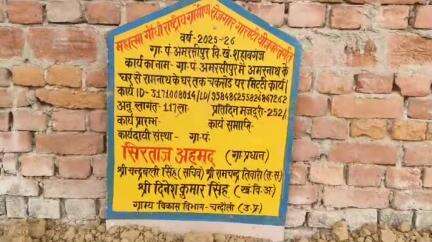 महात्मा गाँधी राष्ट्रीय ग्रामीण रोजगार गारंटी योजनान्तर्गत
वर्ष-2025-26
ग्रा. पं अमरसीपुर वि.खं.शहाबगंज
कार्य का नाम- ग्रा. पं अमरसीपुर में अमरनाथ के
घर से रामनाथ के घर तक चकरोड पर मिट्टी कार्य
कार्य ID- 3171008014/LD/
अनु. लागत- 1.17ला. प्रतिदिन मजदूरी-252/
कार्य प्रारम्भ- कार्य समाप्ति-
कार्यदायी संस्था- ग्रा.पं.
सिरताज अहमद (ग्रा.प्रधान)
श्री चन्द्रबली सिंह (सचिव) श्री रामचन्द्र तिवारी (त.स.)
श्री दिनेश कुमार सिंह (ख.वि.अ.)
ग्राम्य विकास विभाग- चन्दौली (उ.प्र.)